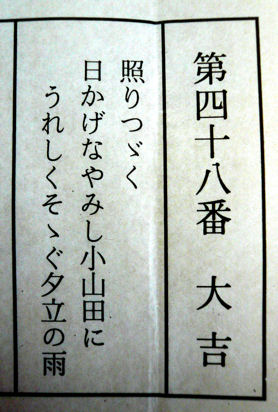 第四十八番　大吉
照りつゞく
日かげなやみし小山田に
うれしくそゝぐ夕立の雨